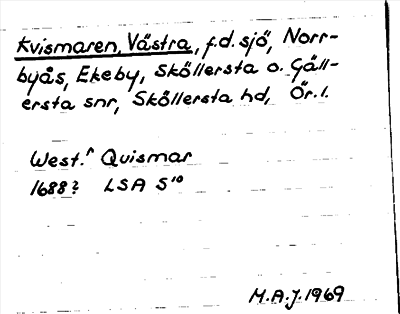 Kvismaren, Västra, f.d. sjö, Norr-
byås, Ekeby, Sköllersta o. Gäll-
ersta snr, Sköllersta hd, Ör. l.
West.^ Quismar
1688? LSA S¹⁰
M.A.J. 1969